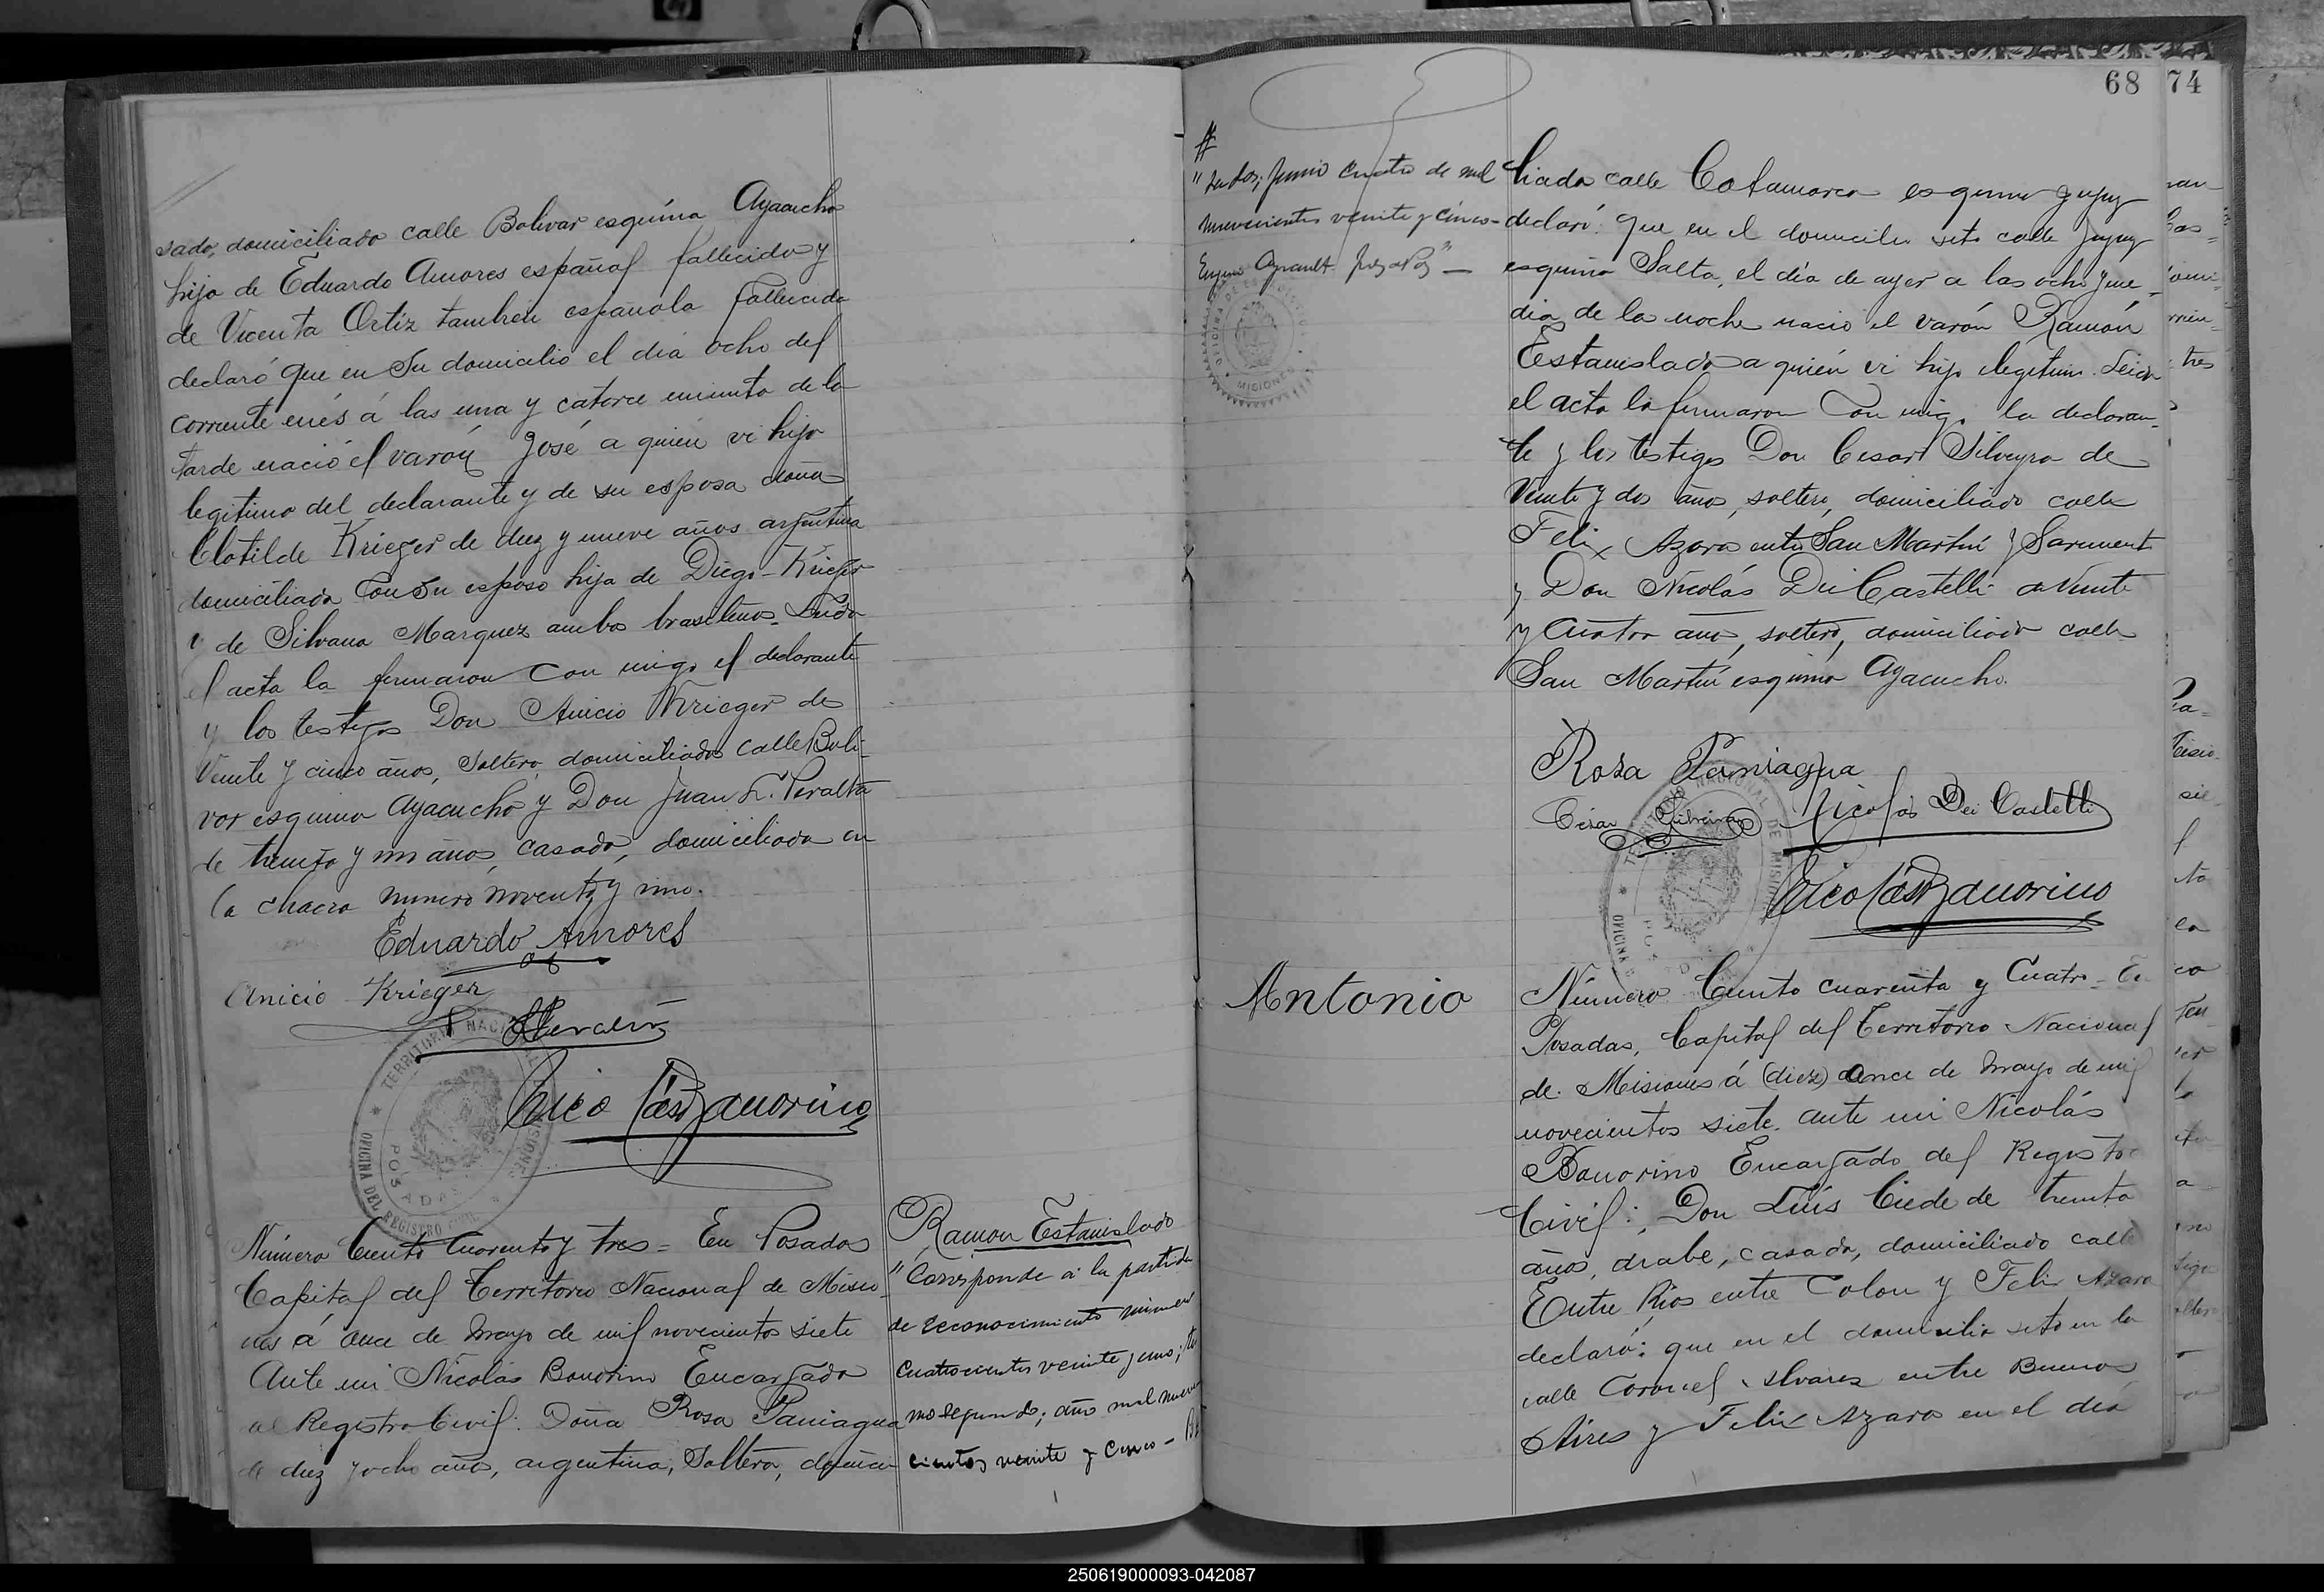 sado, domiciliado calle Bolivar esquina Ayacucho
hijo de Eduardo Amores español fallecido y
de Vicenta Ortiz tambien española fallecida
declaró que en su domicilio el dia ocho del
corriente mes á las una y catorce minuto de la
tarde nació el varón José a quién vi hijo
legitimo del declarante y de su esposa doña
Clotilde Krieger de diez y nueve años argentina
domiciliada con su esposo hija de Diego Krieger
y de Silvana Marquez ambos brasileños. Leida
el acta la firmaron con migo el declarante
y los testigos Don Anicio Krieger de
Veinte y cinco años, soltero, domiciliado calle Boli-
var esquina Ayacucho y Don Juan L. Peralta
de treinta y un años, casado, domiciliado en
la chacra numero noventa y uno.
Eduardo Amores
Anicio Krieger
Nicolás Bonorino
TERRITORIO NACIONAL DE MISIONES
OFICINA DEL REGISTRO CIVIL
POSADAS
Número Ciento Cuarenta y tres = En Posadas
Capital del Territorio Nacional de Misio-
nes á once de Mayo de mil novecientos siete
Ante mi Nicolás Bonorino Encargado
del Registro Civil: Doña Rosa Paniagua
de diez y ocho años, argentina, Soltera, domici-
Ramon Estanislado
"Corresponde á la partida
de reconocimiento número
cuatrocientos veinte y uno; to
mo segundo; año mil nueve
cientos veinte y cinco -
68 74
#
Junio cuatro de mil
novecientos veinte y cinco-
MISIONES
liada calle Catamarca esquina Jujuy
declaró: que en el domicilio sito calle Jujuy
esquina Salta, el día de ayer a las ocho y me-
dia de la noche nació el varón Ramón
Estanislado a quién vi hijo ilegitimo. Leida
el acta la firmaron con migo la declaran-
te y los testigos Don Cesar Silveyra de
Veinte y dos años, soltero, domiciliado calle
Felix Azara entre San Martín y Sarmiento
y Don Nicolás Dei Castelli de Veinte
y Cuatro años, soltero, domiciliado calle
San Martín esquina Ayacucho.
Rosa Paniagua
Cesar Silveira Nicolás Dei Castelli
Nicolás Bonorino
TERRITORIO NACIONAL DE MISIONES
Antonio
Número Ciento cuarenta y Cuatro - En
Posadas, Capital del Territorio Nacional
de Misiones á (diez) once de Mayo de mil
novecientos siete. ante mi Nicolás
Bonorino Encargado del Registro
Civil: Don Luís Ciede de treinta
años, árabe, casado, domiciliado calle
Entre Rios entre Colon y Felix Azara
declaró: que en el domicilio sito en la
calle Coronel Alvarez entre Buenos
Aires y Felix Azara en el día
250619000093-042087